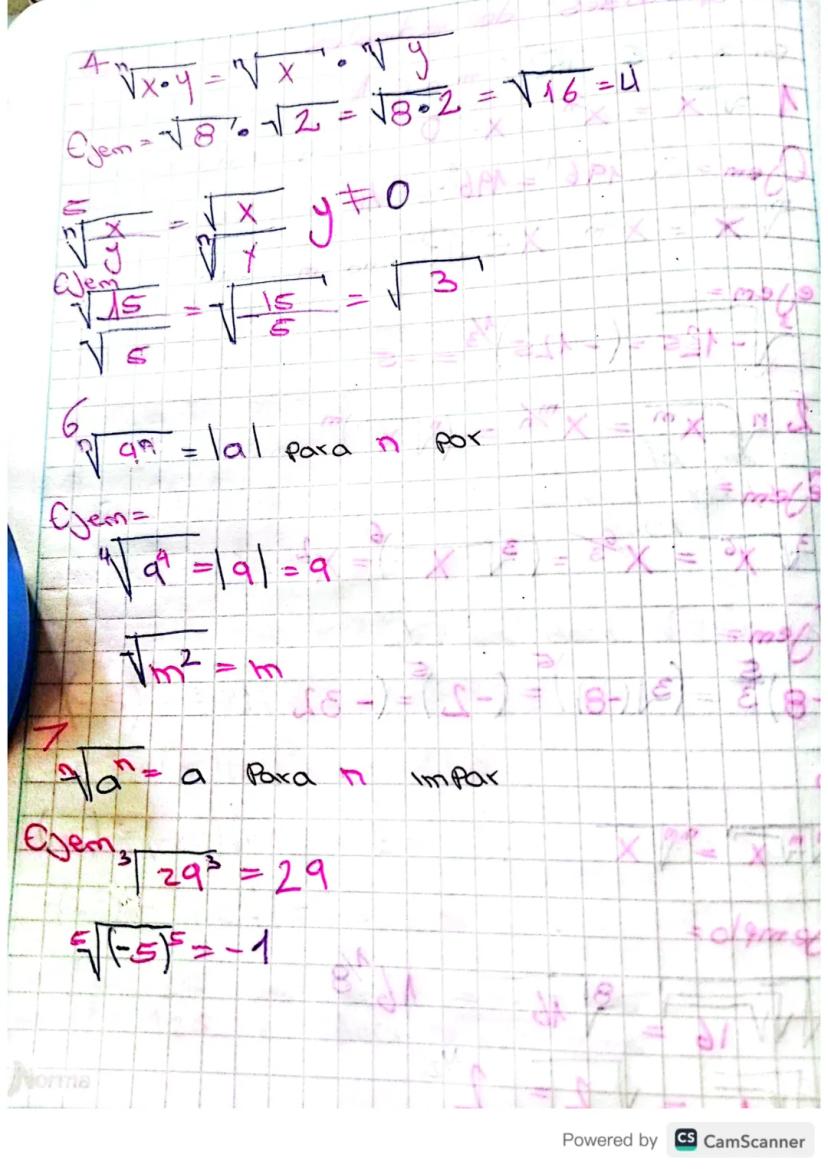 4 ⁿ√x•y = ⁿ√x • ⁿ√y
Ejem = √8 • √2 = √8•2 = √16 = 4
5
ⁿ√x/y = √x / ⁿ√y y ≠ 0
Ejem
√15 / √5 = √15/5 = √3
6
ⁿ√aⁿ = |a| para n por
Ejem=
⁴√a⁴ = |a| = a
√m² = m
7
ⁿ√aⁿ = a Para n impar
Ejem
³√29³ = 29
⁵√(-5)⁵ = -1
Norma
Powered by CS CamScanner